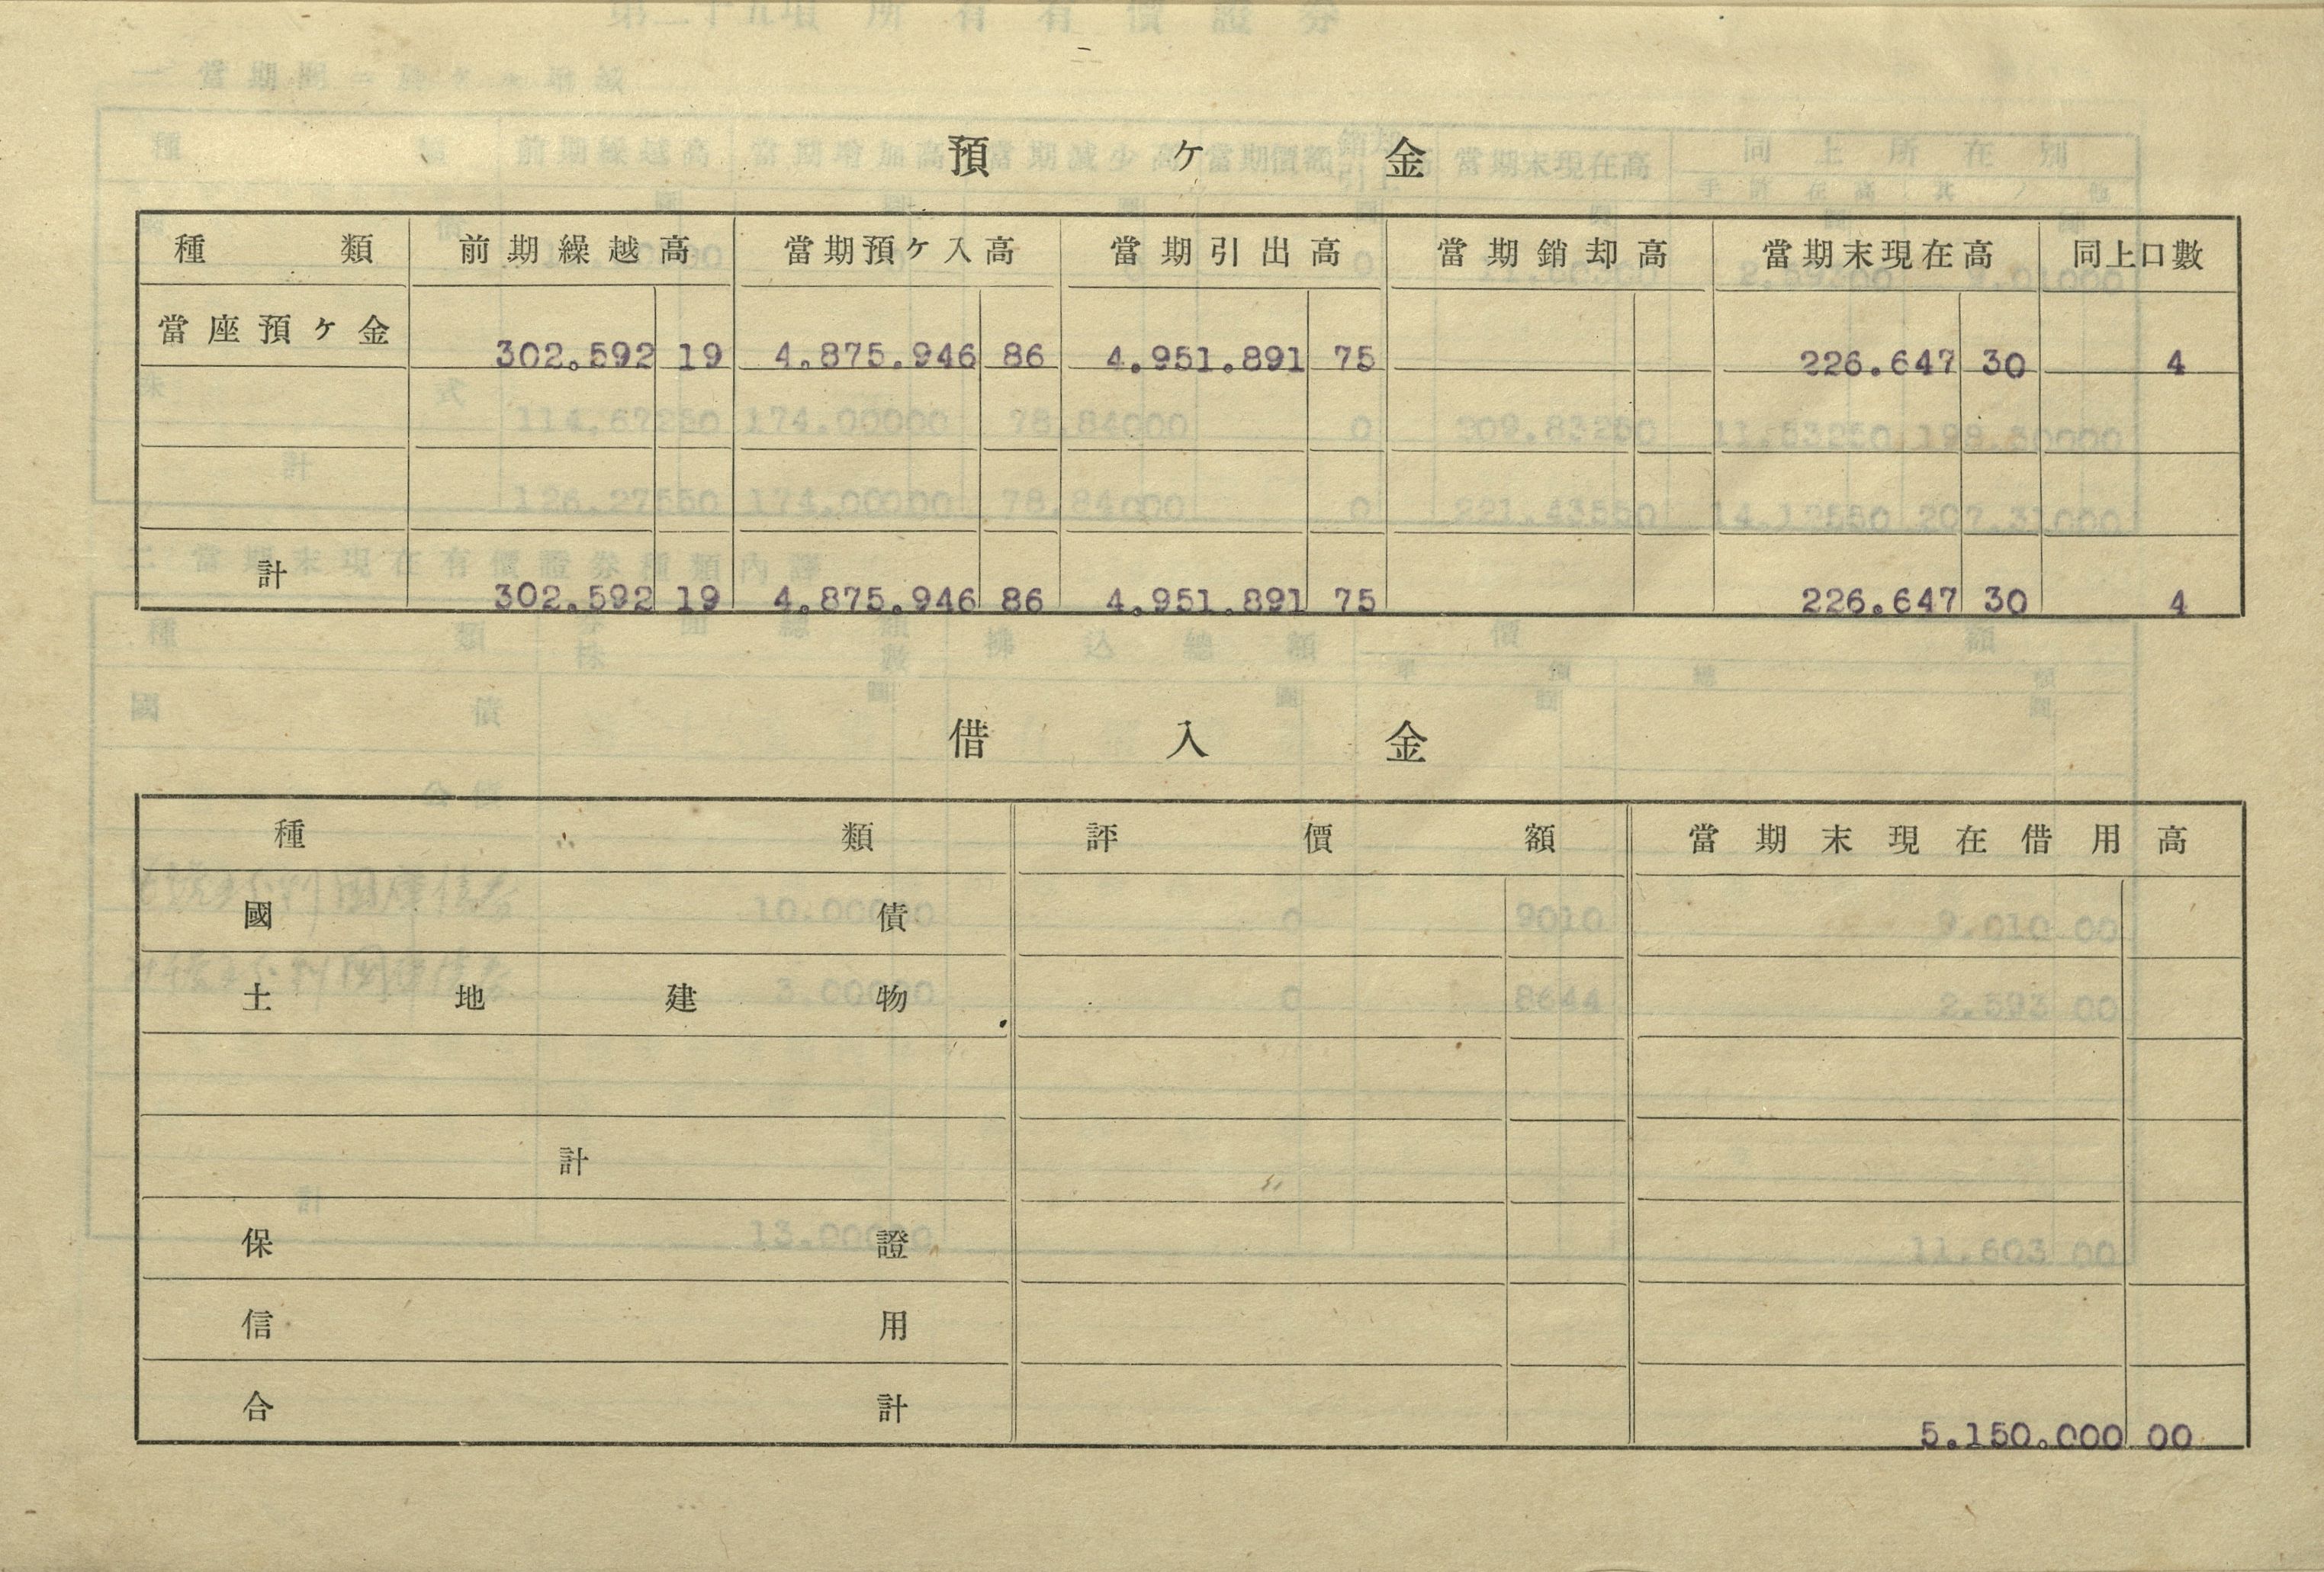 預ケ金
種類 前期繰越高 當期預ケ入高 當期引出高 當期銷却高 當期末現在高 同上口數
當座預ケ金 302.592 19 4.875.946 86 4.951.891 75 226.647 30 4
計 302.592 19 4.875.946 86 4.951.891 75 226.647 30 4
借入金
種類 評價額 當期末現在借用高
國債
土地建物
計
保證
信用
合計 5.150.000 00